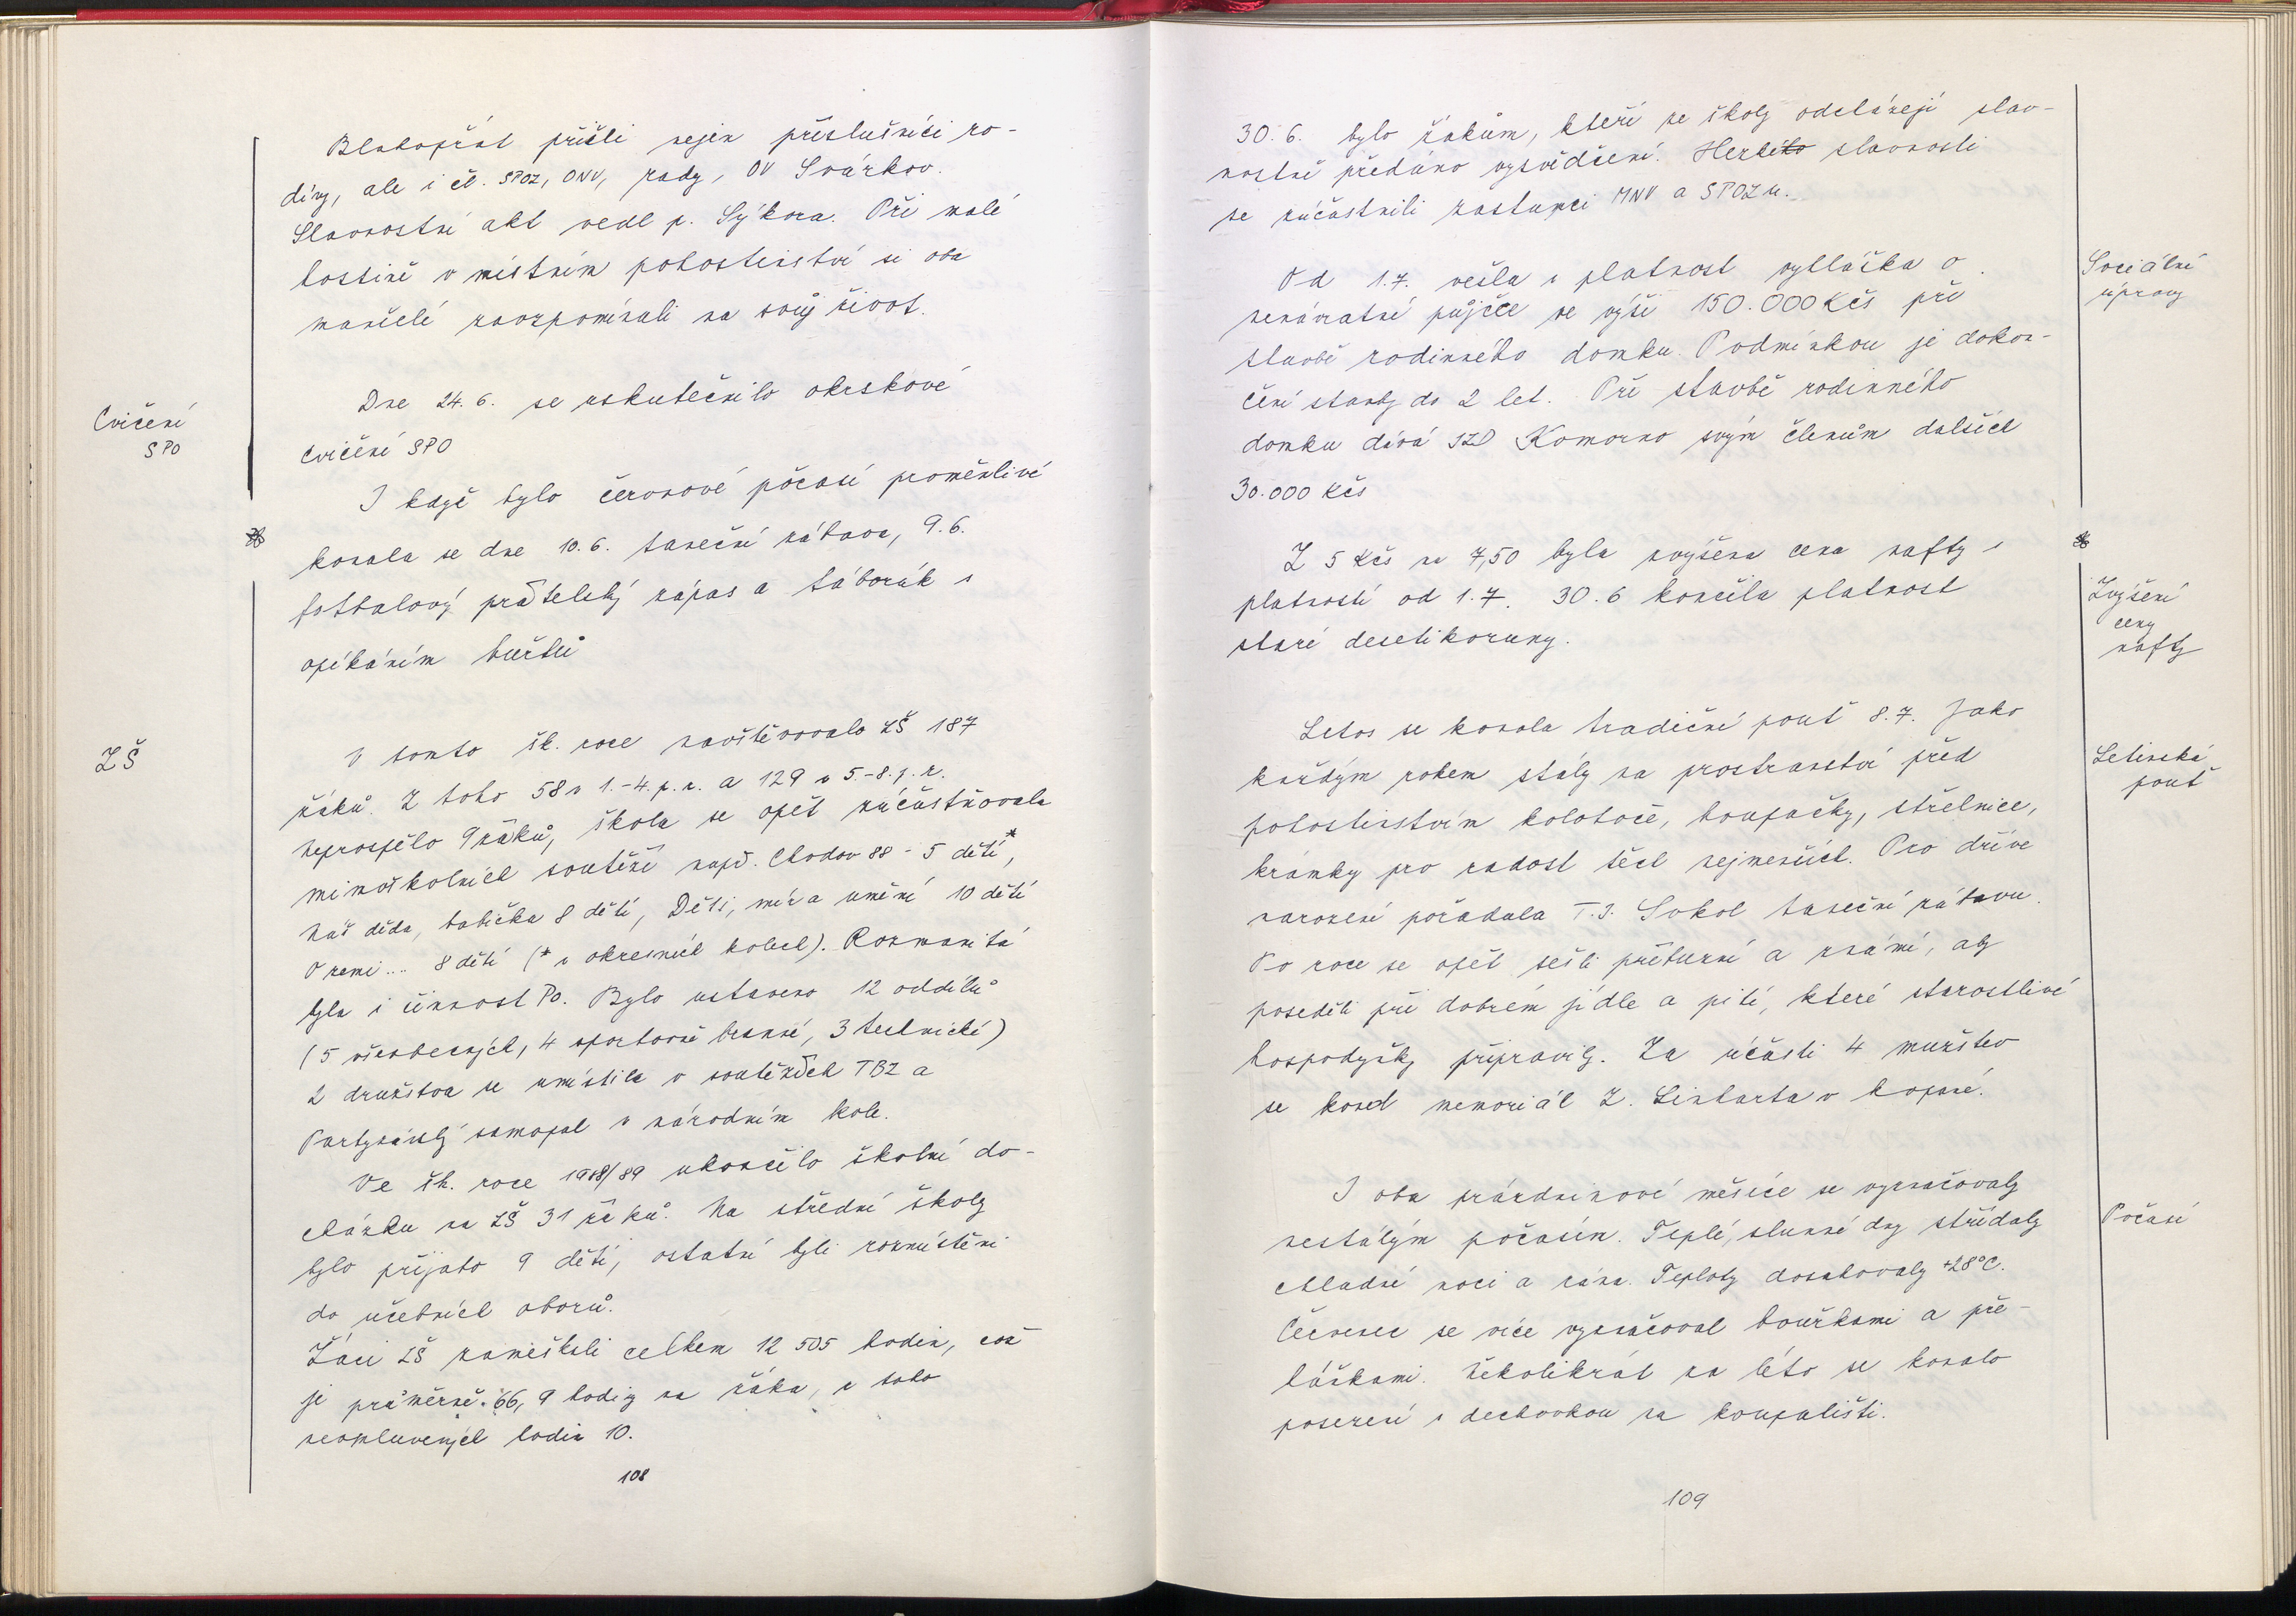 Blahopřát přišli nejen příslušníci ro-
diny, ale i čl. SPOZ, ONV, rady, OV Svárkov.
Slavnostní akt vedl p. Sýkora. Při malé
hostině v místním pohostinství si oba
manželé zavzpomínali na svůj život.
Cvičení
SPO
Dne 24. 6. se uskutečnilo okrskové
cvičení SPO
I když bylo červnové počasí proměnlivé
konala se dne 10. 6. taneční zábava, 9. 6.
fotbalový přátelský zápas a táborák s
opékáním buřtů
ZŠ
V tomto šk. roce navštěvovalo ZŠ 187
žáků. Z toho 58 v 1.-4. p. r. a 129 v 5.-8. p. r.
Neprospělo 9 žáků, škola se opět zúčastňovala
mimoškolních soutěží např. Chodov 88 - 5 dětí*,
Náš děda, babička 8 dětí, Děti, mír a umění 10 dětí
O zemi... 8 dětí (* v okresních kolech). Rozmanitá
byla i činnost PO. Bylo ustaveno 12 oddílů
(5 všeobecných, 4 sportovně branné, 3 technické)
2 družstva se umístila v soutěžích TBZ a
Partyzánský samopal v národním kole.
Ve šk. roce 1988/89 ukončilo školní do-
cházku na ZŠ 31 žáků. Na střední školy
bylo přijato 9 dětí, ostatní byli rozmístěni
do učebních oborů.
Žáci ZŠ zameškali celkem 12 505 hodin, což
je průměrně 66, 9 hodiny na žáka, z toho
neomluvených hodin 10.
108
30. 6. bylo žákům, kteří ze školy odcházejí slav-
nostně předáno vysvědčení. slavnosti
se zúčastnili zástupci MNV a SPOZu.
Sociální
úpravy
Od 1. 7. vešla v platnost vyhláška o
nenávratné půjčce ve výši 150.000 Kčs při
stavbě rodinného domku. Podmínkou je dokon-
čení stavby do 2 let. Při stavbě rodinného
domku dává JZD Komorno svým členům dalších
30.000 Kčs
Zvýšení
ceny
nafty
Z 5 Kčs na 7,50 byla zvýšena cena nafty s
platností od 1. 7. 30. 6 končila platnost
staré desetikoruny.
Letinská
pouť
Letos se konala tradiční pouť 8. 7. Jako
každým rokem stály na prostranství před
pohostinstvím kolotoče, houpačky, střelnice,
krámky pro radost těch nejmenších. Pro dříve
narozené pořádala T.J. Sokol taneční zábavu.
Po roce se opět sešli příbuzní a známí, aby
poseděli při dobrém jídle a pití, které starostlivé
hospodyňky připravily. Za účasti 4 mužstev
se konal memoriál Z. Linharta v kopané.
Počasí
I oba prázdninové měsíce se vyznačovaly
nestálým počasím. Teplé, slunné dny střídaly
chladné noci a rána. Teploty dosahovaly +28°C.
Červenec se více vyznačoval bouřkami a pře-
háňkami. Několikrát za léto se konalo
posezení s dechovkou na koupališti.
109